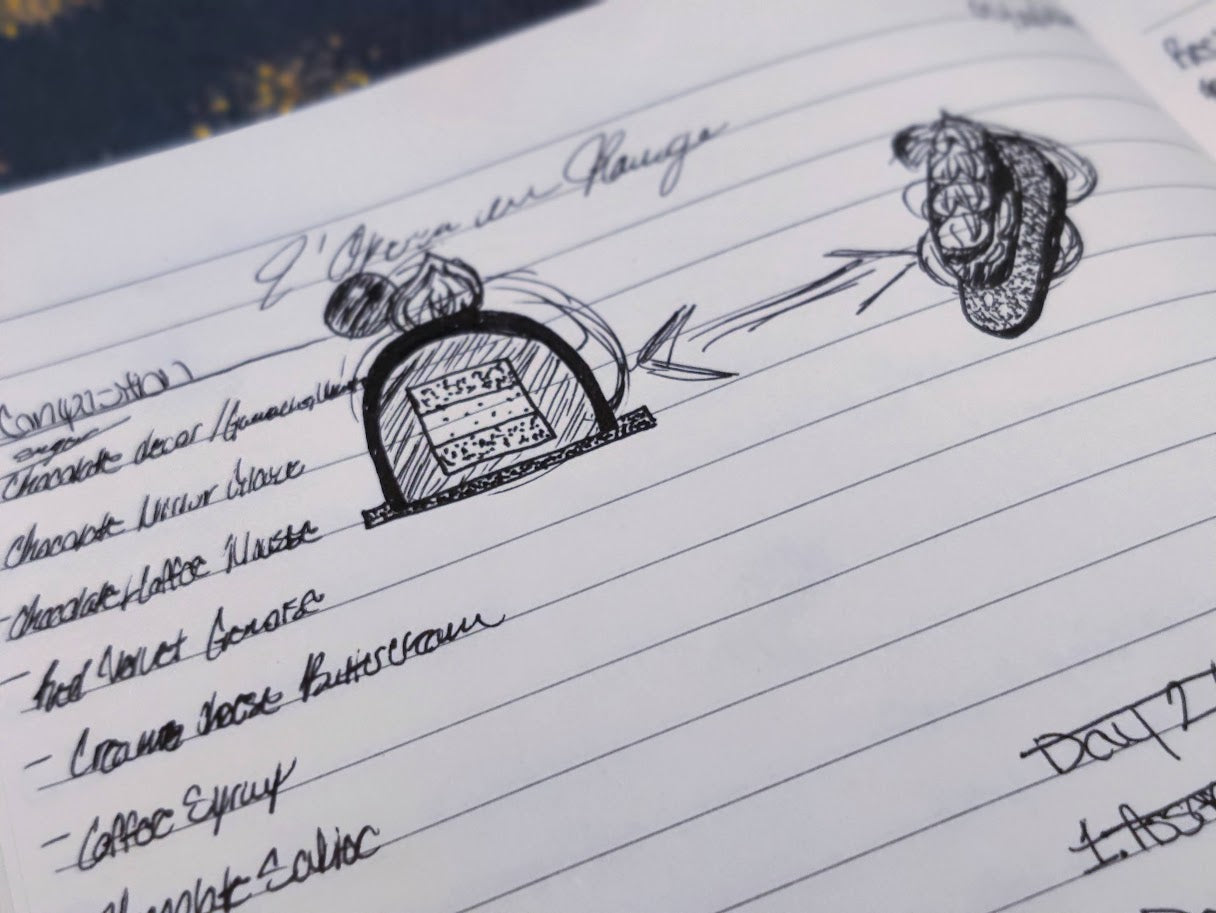 L'Opera en Rouge
Composition
Sugar
Chocolate decor / Ganache
Chocolate Mirror Glaze
- Chocolate / Coffee Mousse
- Red Velvet Genoise
- Creame cheese Buttercream
- Coffee Syrup
Chocolate Sablée
Day 2
1. Ass